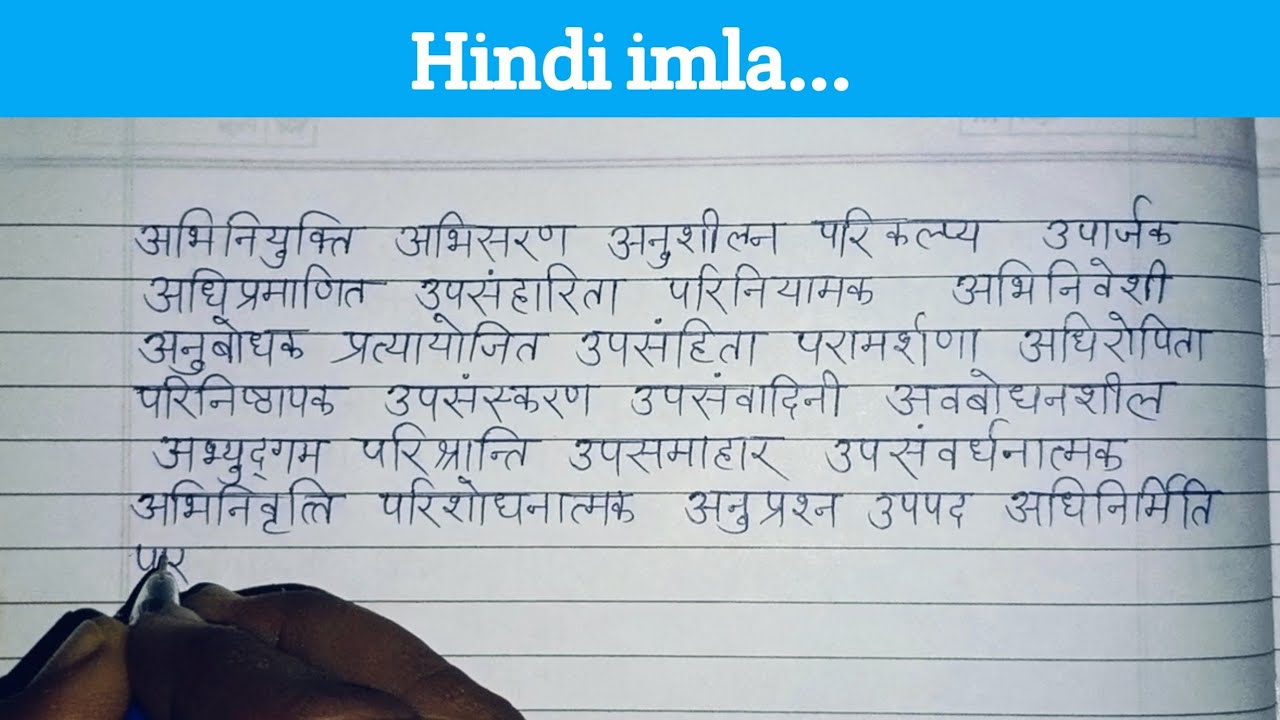 Hindi imla...
अभिनियुक्ति अभिसरण अनुशीलन परिकल्प्य उपार्जक
अधिप्रमाणित उपसंहारिता परिनियामक अभिनिवेशी
अनुबोधक प्रत्यायोजित उपसंहिता परामर्शणा अधिरोपिता
परिनिष्ठापक उपसंस्करण उपसंवादिनी अवबोधनशील
अभ्युद्गम परिश्रान्ति उपसमाहार उपसंवर्धनात्मक
अभिनिवृत्ति परिशोधनात्मक अनुप्रश्न उपपद अधिनिर्मिति